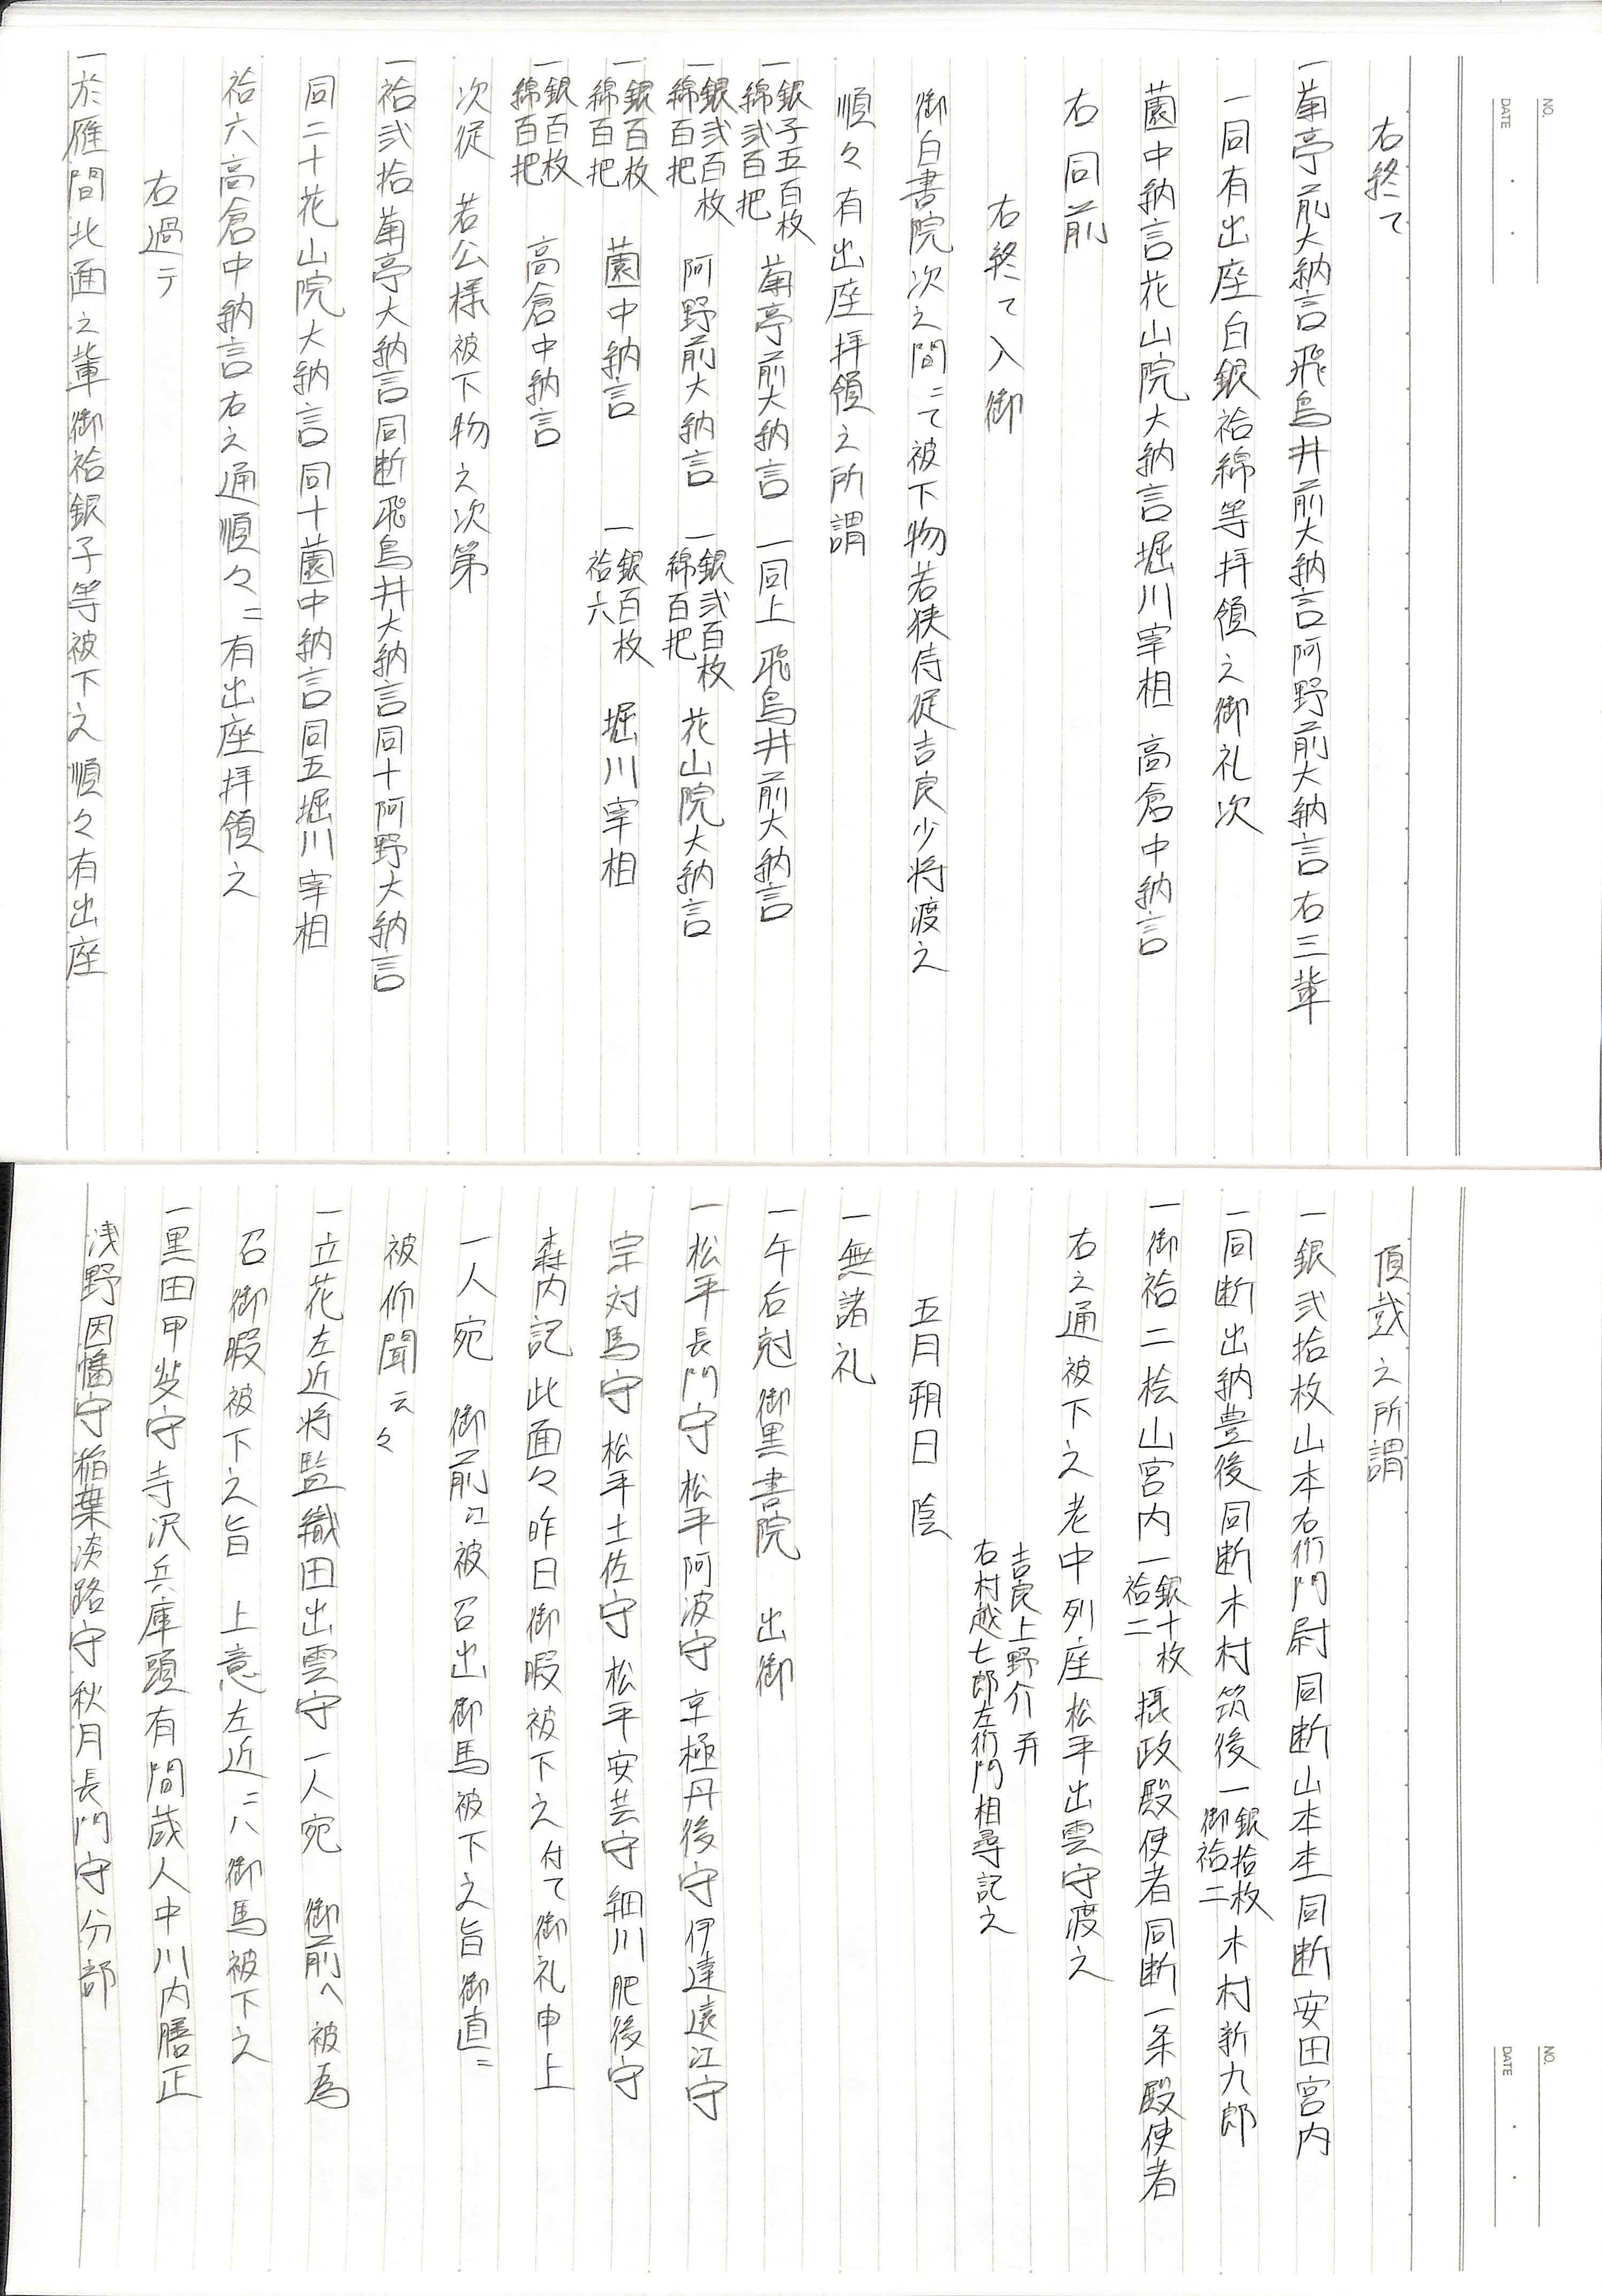 NO.
DATE
右終て
一菊亭前大納言飛鳥井前大納言阿野前大納言右三輩
一同有出座白銀袷綿等拝領之御礼次
薗中納言花山院大納言堀川宰相 高倉中納言
右同前
右終て入御
御白書院次之間ニて被下物若狭侍従吉良少将渡之
順々有出座拝領之所謂
一銀子五百枚 綿弐百把 菊亭前大納言 一同上 飛鳥井前大納言
一銀弐百枚 綿百把 阿野前大納言 一銀弐百枚 綿百把 花山院大納言
一銀百枚 綿百把 薗中納言 一銀百枚 袷六 堀川宰相
一銀百枚 綿百把 高倉中納言
次従 若公様被下物之次第
一袷弐拾菊亭大納言同断飛鳥井大納言同十阿野大納言
同二十花山院大納言同十薗中納言同五堀川宰相
袷六高倉中納言右之通順々ニ有出座拝領之
右過テ
一於雁間北面之輩御袷銀子等被下之順々有出座
NO.
DATE
頂戴之所謂
一銀弐拾枚山本右衛門尉同断山本杢同断安田宮内
一同断出納豊後同断木村筑後一銀拾枚 御袷二 木村新九郎
一御袷二桧山宮内一銀十枚 袷二 摂政殿使者同断一条殿使者
右之通被下之老中列座松平出雲守渡之
吉良上野介并
右村越七郎左衛門相尋記之
五月朔日 陰
一無諸礼
一午后尅御黒書院 出御
一松平長門守松平阿波守京極丹後守伊達遠江守
宗対馬守松平土佐守松平安芸守細川肥後守
森内記此面々昨日御暇被下之付て御礼申上
一人宛 御前江被召出御馬被下之旨御直ニ
被仰聞云々
一立花左近将監織田出雲守一人宛 御前へ被為
召御暇被下之旨 上意左近ニハ御馬被下之
一黒田甲斐守寺沢兵庫頭有間蔵人中川内膳正
浅野因幡守稲葉淡路守秋月長門守分部